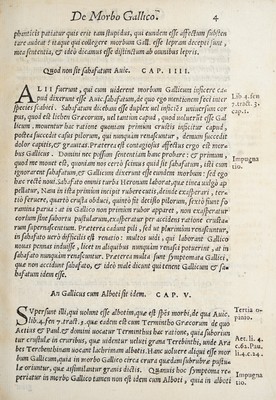 De Morbo Gallico.
4
phanticis patiatur quis erit tam stupidus, qui eundem esse affectum subsecu
tare audeat? itaque qui collegere morbum Gall. esse lepram decepti sunt,
mea sententia, & ideo dicamus esse distinctum ab omnibus lepris.
Quod non sit sahafatum Auic. CAP. IIII.
ALII fuerunt, qui cum uiderent morbum Gallicum inficere ca
put dixerunt esse Auic. sahafatum, de quo ego mentionem feci inter
species scabiei. Sahafatum dicebam esse duplex uel inficit uniuersum cor
pus, quod est lichen Græcorum, uel tantum caput, quod uulneris esse Gal
licum, mouentur hac ratione quoniam primum crustis inficitur caput,
postea succedit casus pilorum, qui nunquam renascuntur, demum succedit
dolor capitis, & grauitas. Præterea est contagiosus affectus ergo est mor
bus Gallicus. Domini nec possum sententiam hanc probare: & primum,
quod me mouet est, quoniam nos certò scimus quid sit sahafatum, ibi cum
ignorarent, quid esset Gallicum & dixerunt esse eundem morbum: sed ego
hoc rectè noui. Sahafato omnis turba
pellatur, Nam in ista primùm incipit rubore cutis, deinde exasperari, ter-
tiò feruere, quartò crusta obduci, quintò fit decisio pilorum, sextò
ramina parua: at in Gallico non primùm rubor apparet, non exasperatur
corium sine suborta pustularum, exasperatur per accidens ratione crusta-
rum superuenientium. Præterea cadunt pili, sed ut plurimùm renascuntur,
in sahafato uerò difficilis est renatio: multos uidi, qui laborant Gallico
nouas pennas induisse, licet in aliquibus nunquam renasci potuerint, at in
sahafato nunquam renascuntur. Præterea multa sunt symptomata Gallici,
quæ non accedunt sahafato, & ideò malè dicunt qui tenent Gallicum & sa-
hafatum idem esse.
An Gallicus cum Alboti sit idem. CAP. V.
SVpersunt illi, qui uolunt esse albotim, quæ est species morbi, de qua Auic.
lib. 4. sen 7. tract. 3. quæ eædem est cum Terminthis Græcorum de qua
Aetius & Paul. & domini uocatur Terminthus hac ratione, quia suboriun
tur crustulæ in cruribus, quæ uidentur uelut grana Terebinthi, unde Ara
bes Terebinthinam uocant lachrimam alboti. Hanc uolorunt aliqui esse mor
bum Gallicum, quia ut in morbo Gallico circa crura quædam suborobræ pustu-
læ oriuntur, quæ assimilantur grauis dictis. Quamuis hoc symptoma re-
periatur in morbo Gallico tamen non est idem cum Alboti, quia in alboti
Lib 4. sen
7. tract. 3.
cap. 1.
Impugna
tio.
Impugna
tio.
Tertia o-
pinio.
Aet. li. 4.
c. 61. Pau.
li. 4. c. 24.
Impugna
tio.